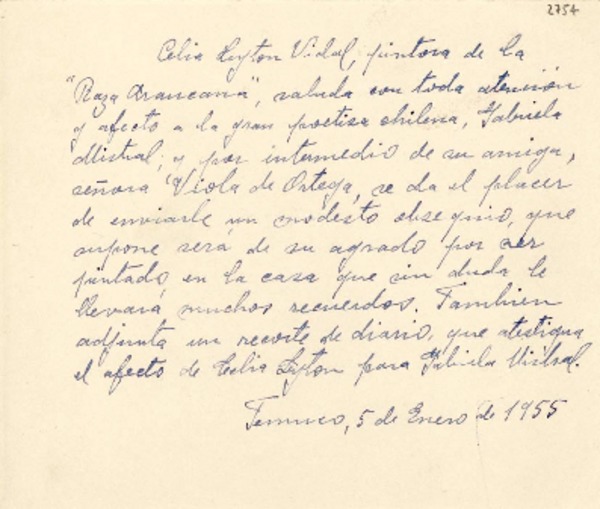 2754
Celia Leyton Vidal, pintora de la
"Raza Araucana", saluda con toda atención
y afecto a la gran poetisa chilena, Gabriela
Mistral, y por intermedio de su amiga,
señora Viola de Ortega, se da el placer
de enviarle un modesto obsequio, que
supone será de su agrado por ser
pintado en la casa que sin duda le
llevará muchos recuerdos. Tambien
adjunta un recorte de diario, que atestigua
el afecto de Celia Leyton para Gabriela Mistral.
Temuco, 5 de Enero de 1955